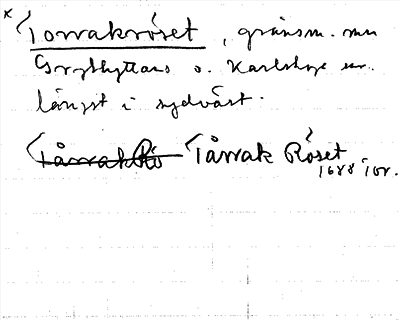 × Torrakröset, gränsm. mn
Grythyttans o. Karlskoga snr.
längst i sydväst.
Tårrak Rö Tårrak Röset
1688